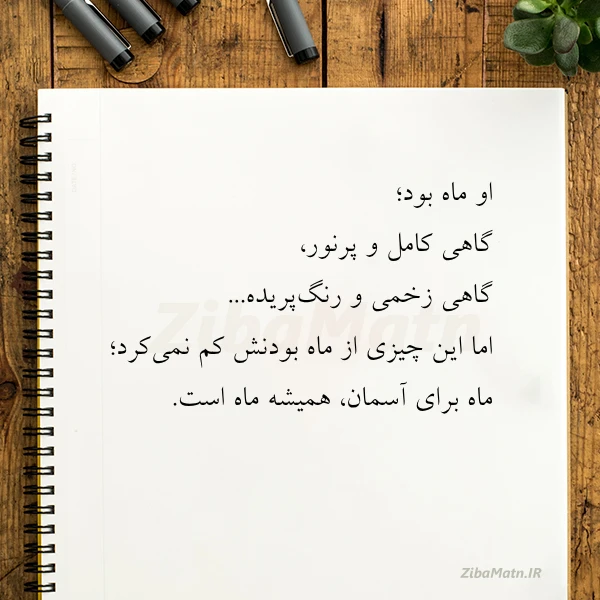 او ماه بود؛
گاهی کامل و پرنور،
گاهی زخمی و رنگ‌پریده...
اما این چیزی از ماه بودنش کم نمی‌کرد؛
ماه برای آسمان، همیشه ماه است.
ZibaMatn
ZibaMatn.IR